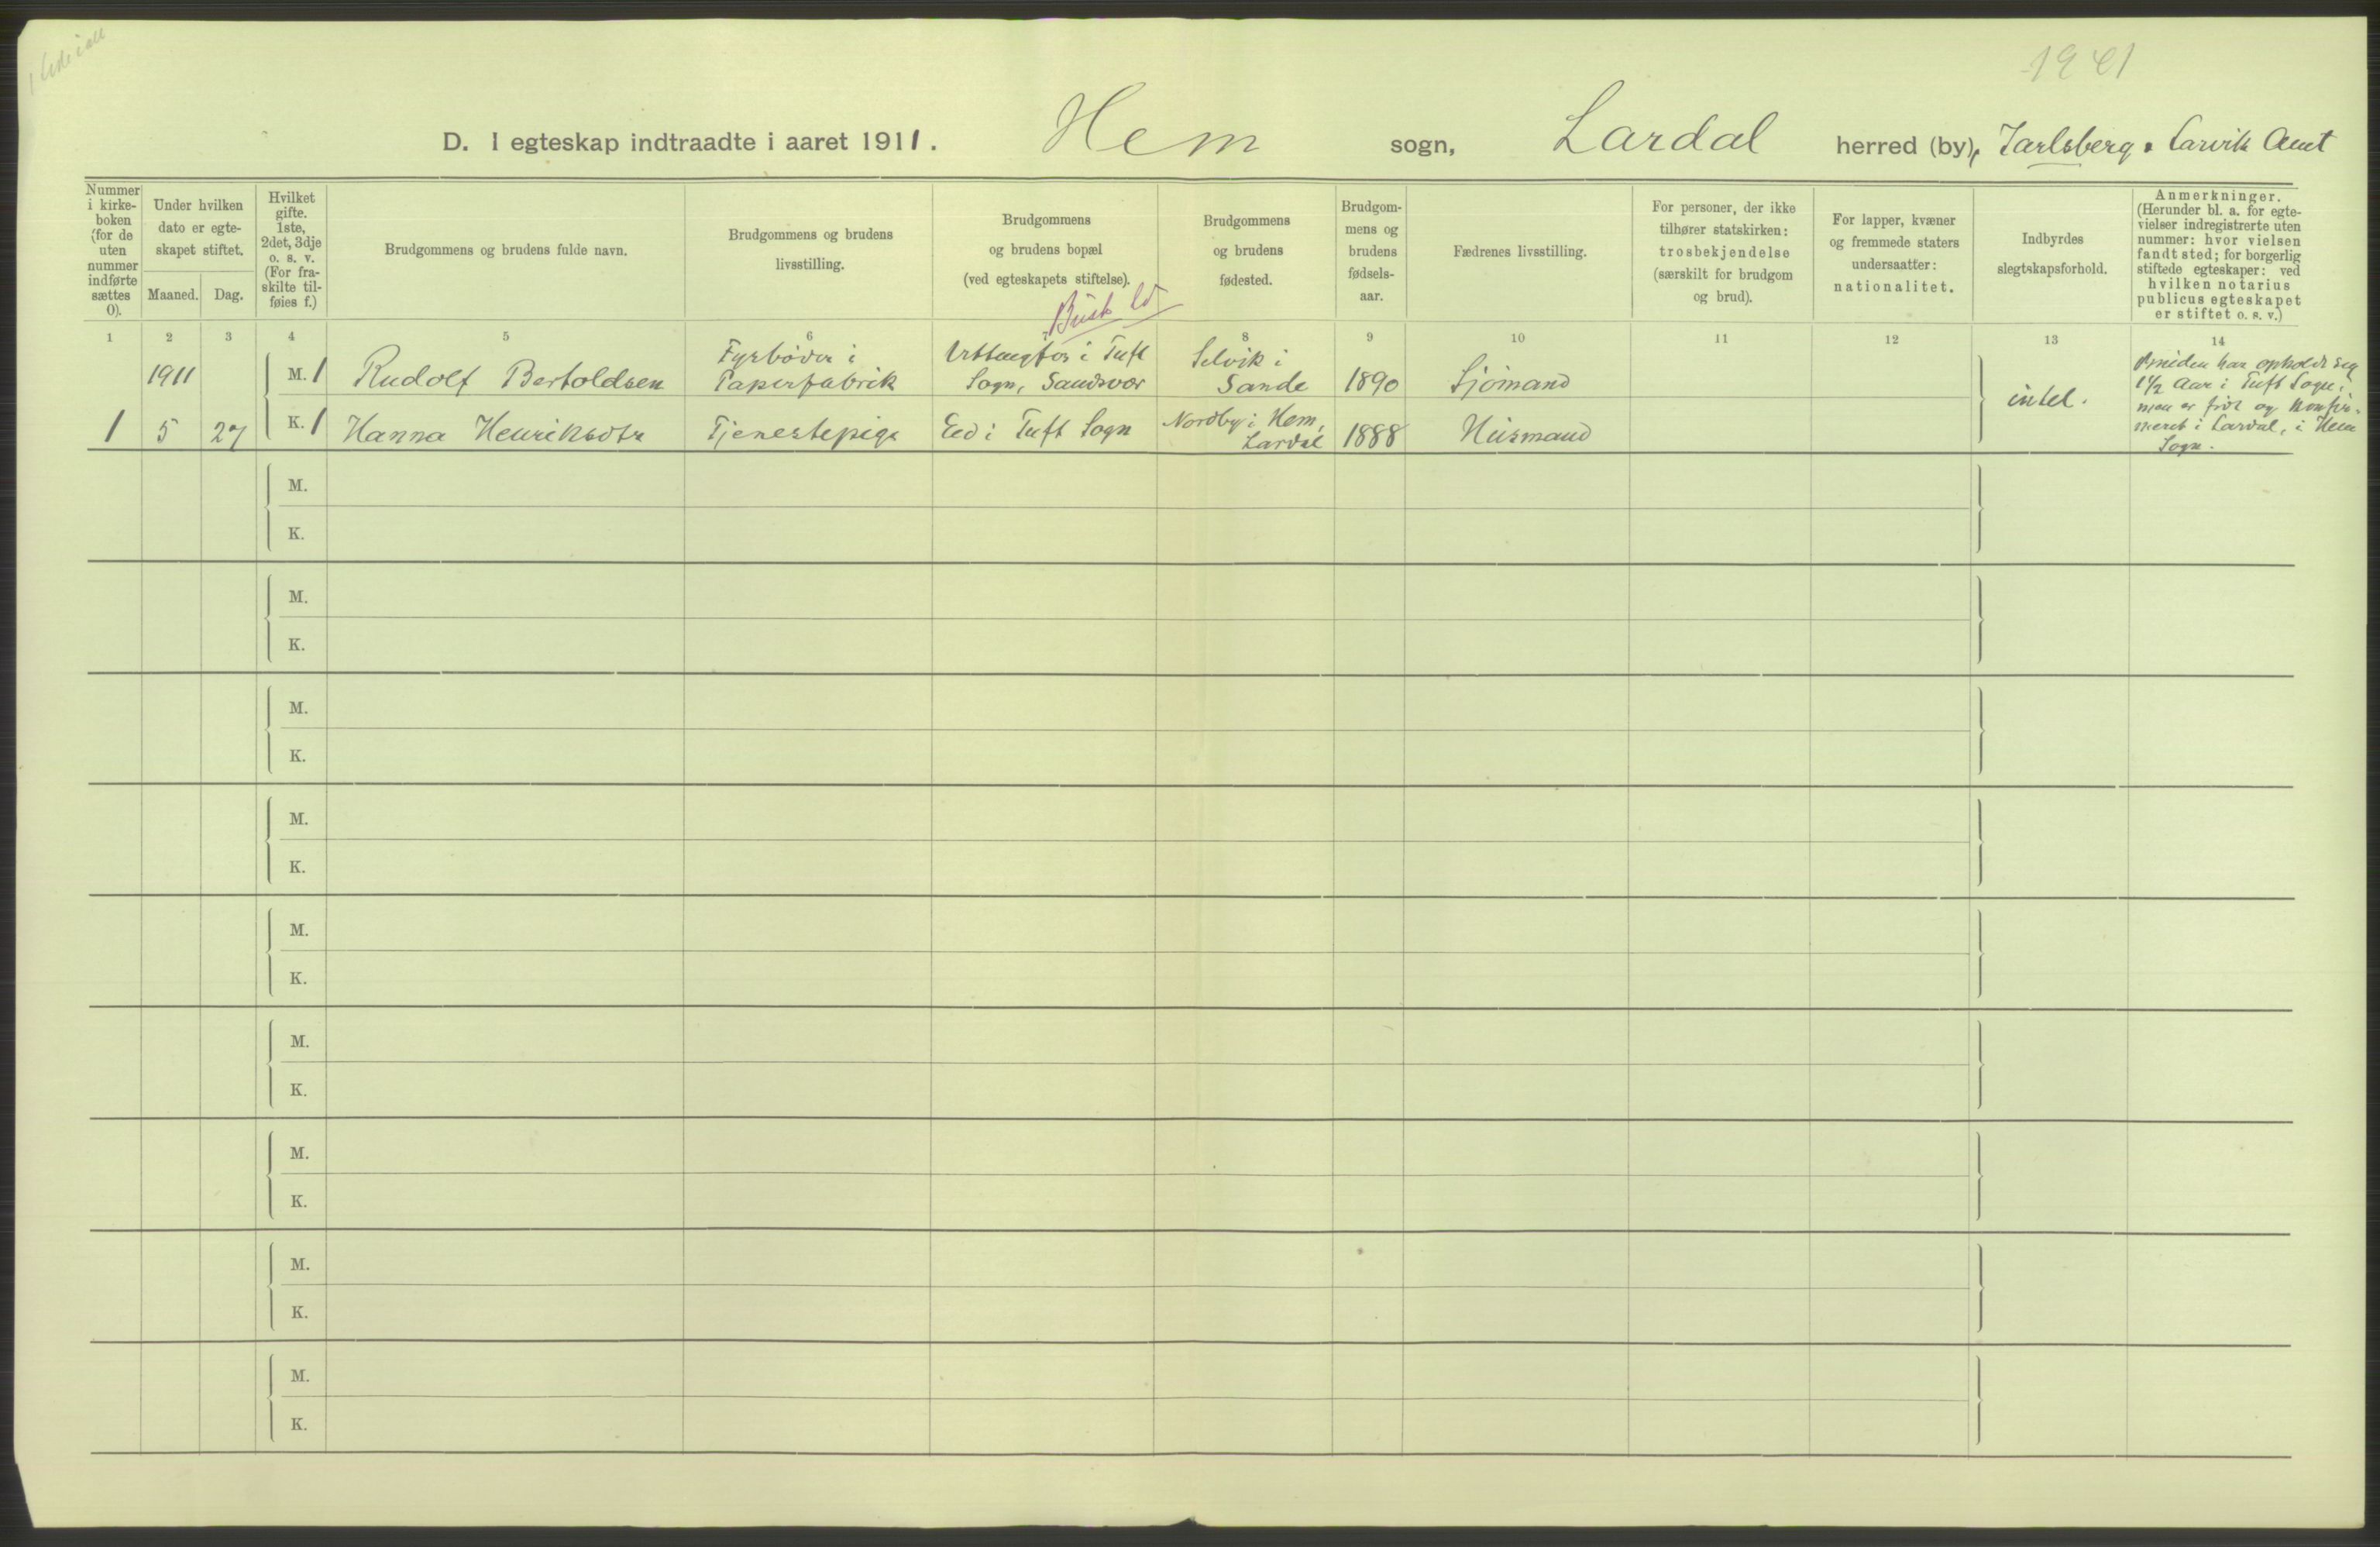 D. I egteskap indtraadte i aaret 1911. Hem sogn, Lardal herred (by), Jarlsberg & Larvik Amt
Nummer
i kirke-
boken
(for de
uten
nummer
indførte
sættes
0).
Under hvilken
dato er egte-
skapet stiftet.
Maaned. Dag.
Hvilket
gifte.
1ste,
2det, 3dje
o. s. v.
(For fra-
skilte til-
føies f.)
Brudgommens og brudens fulde navn.
Brudgommens og brudens
livsstilling.
Brudgommens
og brudens bopæl
(ved egteskapets stiftelse).
Brudgommens
og brudens
fødested.
Brudgom-
mens og
brudens
fødsels-
aar.
Fædrenes livsstilling.
For personer, der ikke
tilhører statskirken:
trosbekjendelse
(særskilt for brudgom
og brud).
For lapper, kvæner
og fremmede staters
undersaatter:
nationalitet.
Indbyrdes
slegtskapsforhold.
Anmerkninger.
(Herunder bl. a. for egte-
vielser indregistrerte uten
nummer: hvor vielsen
fandt sted; for borgerlig
stiftede egteskaper: ved
hvilken notarius
publicus egteskapet
er stiftet o. s. v.)
Busk
1 2 3 4 5 6 7 8 9 10 11 12 13 14
1911
M. 1
Rudolf Bertoldsen
Fyrbøder i
Papirfabrik
i Tuft
Sogn, Sandsvær
Selvik i
Sande
1890
Sjømand
1 5 27
K. 1
Hanna Henriksdtr
Tjenestepige
Eed i Tuft Sogn
Nordby i Hem,
Lardal
1888
Husmand
intet.
Bruden har opholdt seg
1 1/2 Aar i Tuft Sogn,
men er født og konfir-
meret i Lardal, i Hem
Sogn.
M.
K.
M.
K.
M.
K.
M.
K.
M.
K.
M.
K.
M.
K.
M.
K.
M.
K.